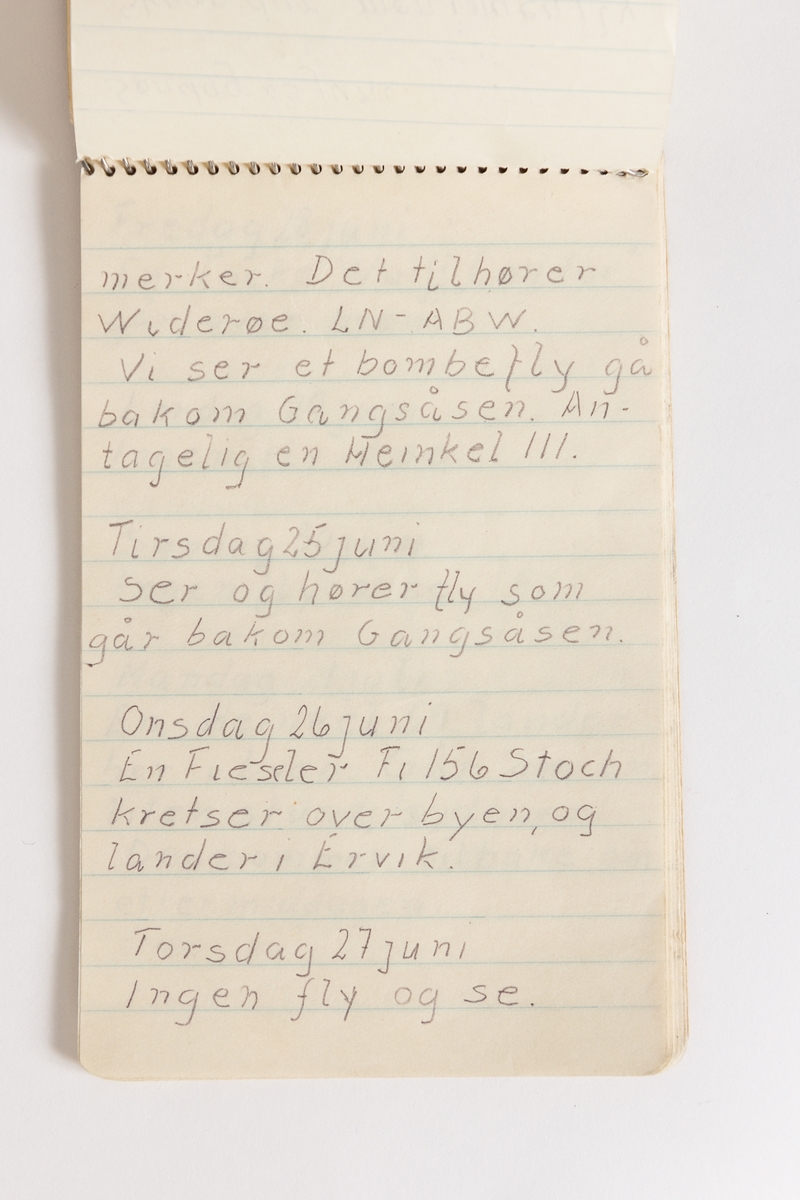 merker. Det tilhører
Widerøe. LN-ABW.
Vi ser et bombefly gå
bakom Gangsåsen. An-
tagelig en Heinkel 111.
Tirsdag 25 juni
Ser og hører fly som
går bakom Gangsåsen.
Onsdag 26 juni
En Fieseler Fi 156 Stoch
kretser over byen, og
lander i Ervik.
Torsdag 27 juni
Ingen fly og se.